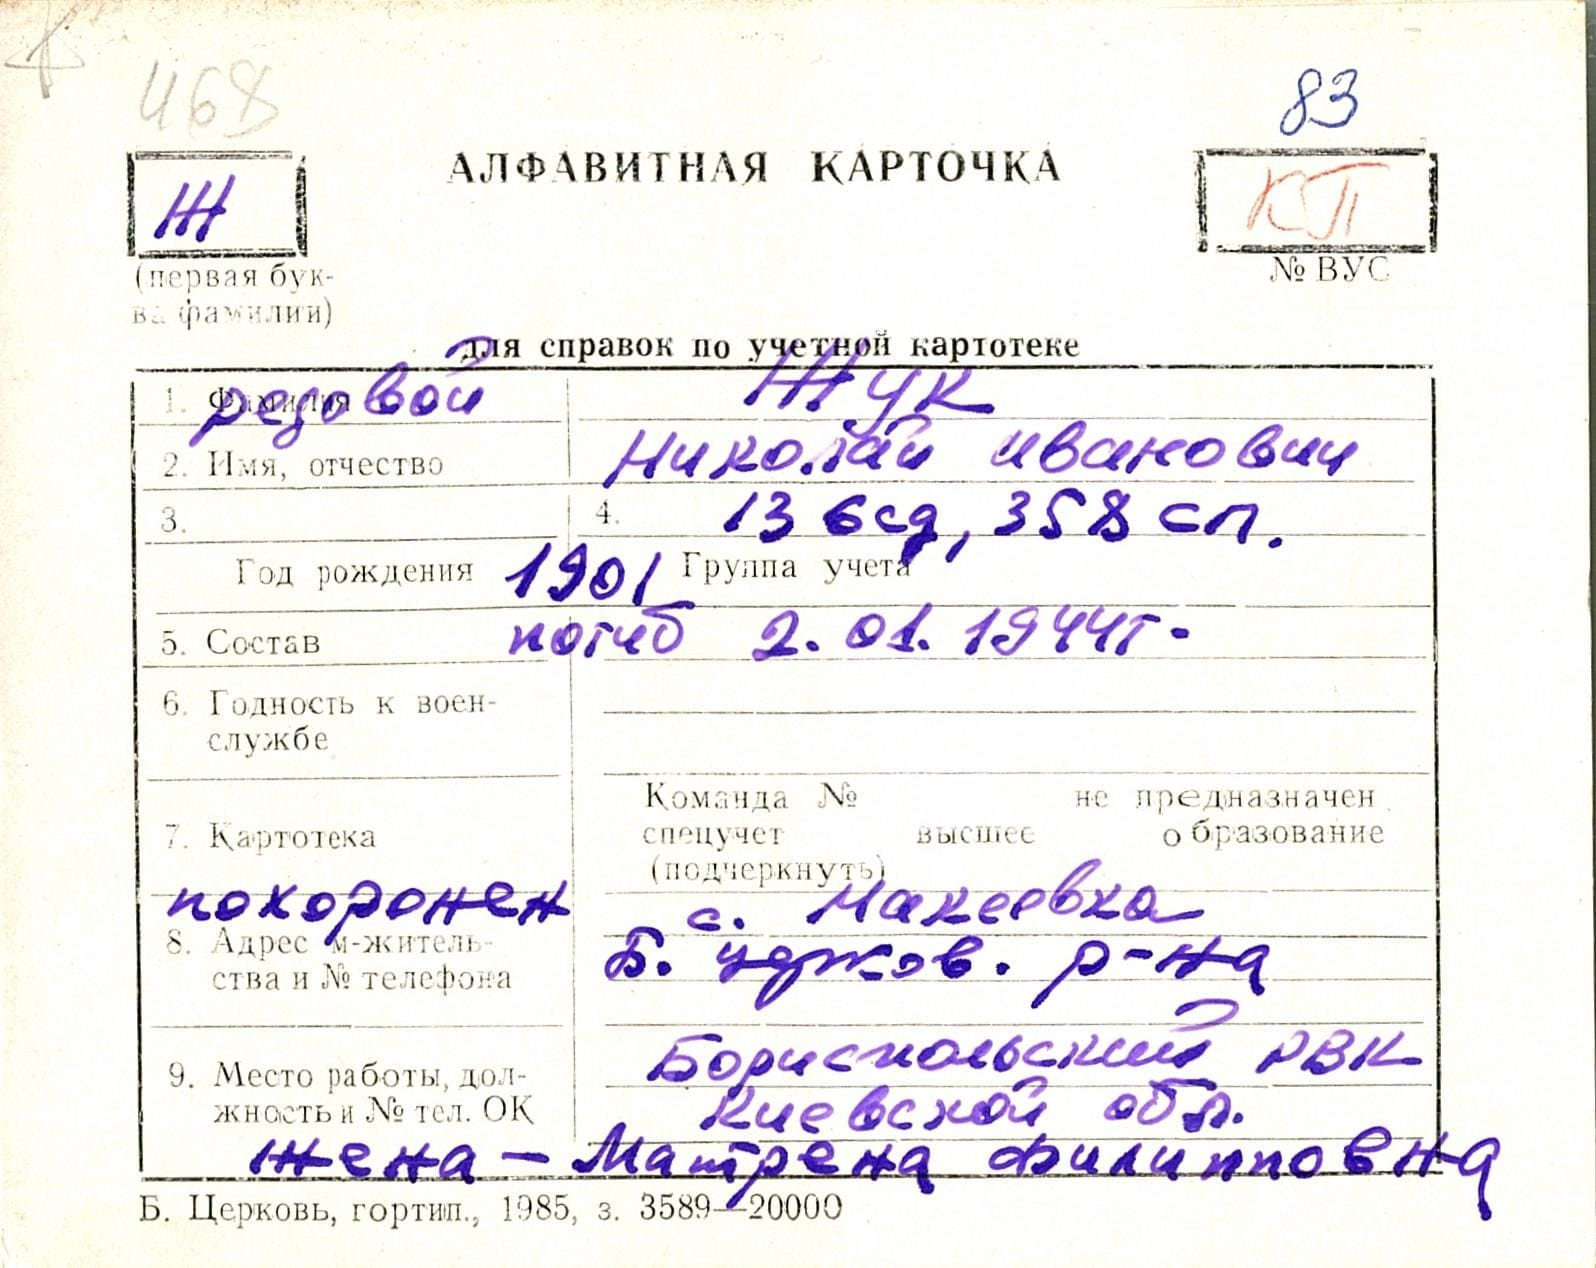 468
83
Ж
АЛФАВИТНАЯ КАРТОЧКА
КП
(первая бук-
ва фамилии)
№ ВУС
для справок по учетной картотеке
1. Фамилия
редовой Жук
2. Имя, отчество Николай Иванович
3. 4. 136сд, 358 сп.
Год рождения 1901 Группа учета
5. Состав погиб 2.01.1944г.
6. Годность к воен-
службе
Команда № не предназначен
7. Картотека спецучет высшее образование
(подчеркнуть)
похоронен с. Макеевка
8. Адрес м-житель-
ства и № телефона Б. Церков. р-на
Бориспольский РВК
9. Место работы, дол-
жность и № тел. ОК Киевской обл.
жена – Матрена Филипповна
Б. Церковь, гортип., 1985, з. 3589—20000